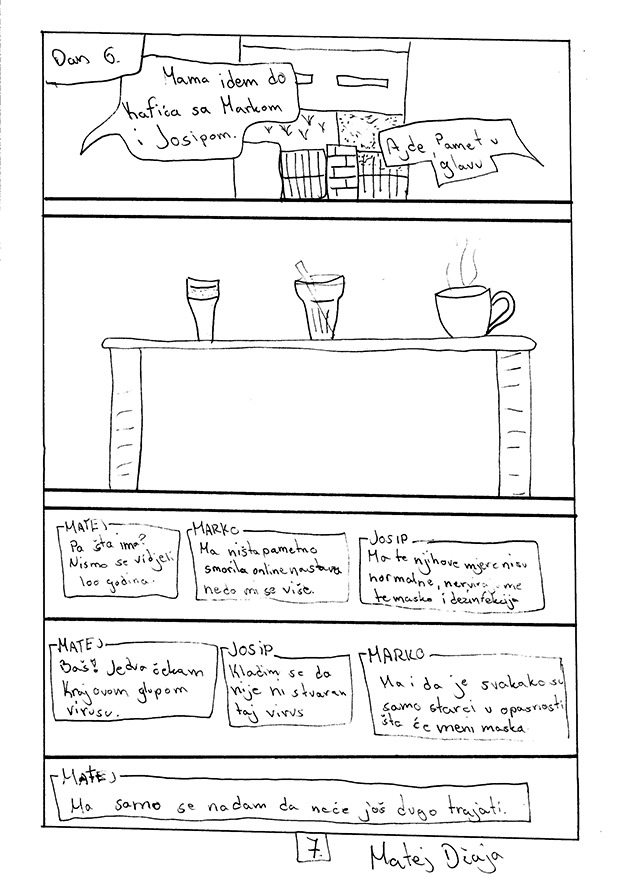 Dan 6.
Mama idem do
kafića sa Markom
i Josipom.
Ajde Pamet u
glavu
MATEJ
Pa šta ima?
Nismo se vidjeli
100 godina.
MARKO
Ma ništa pametno
smorila online nastava
neda mi se više.
JOSIP
Ma te njihove mjere nisu
normalne, nervira me
te maske i dezinfekcija
MATEJ
Baš! Jedva čekam
kraj ovom glupom
virusu.
JOSIP
Kladim se da
nije ni stvaran
taj virus
MARKO
Ma i da je svakako su
samo starci u opasnosti
šta će meni maska
MATEJ
Ma samo se nadam da neće još dugo trajati.
7.
Matej Džaja